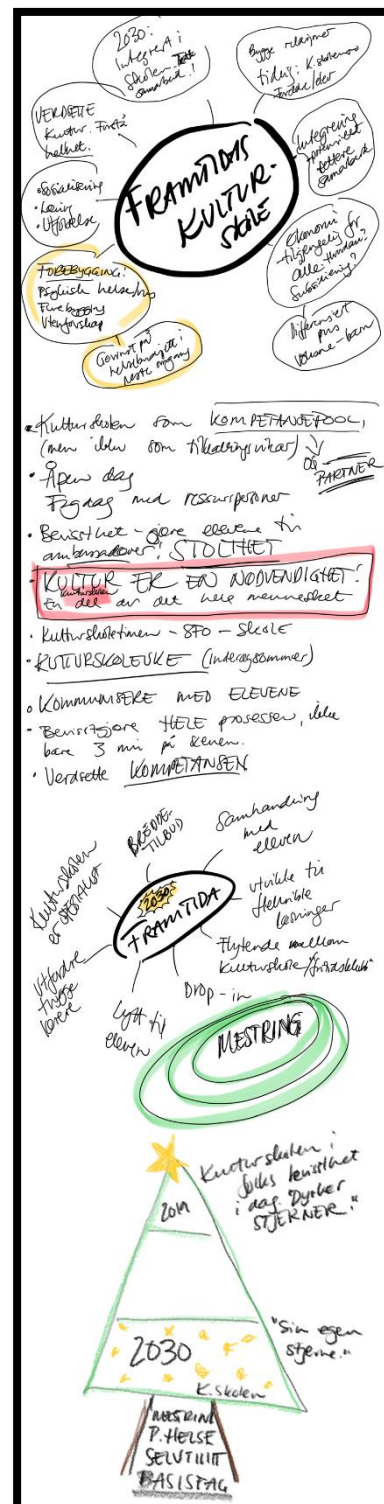 2030:
Integrert i
skolen. Tett
samarbeid!
Bygge relasjoner
tidlig: K.skolen
Foreldre/elev
VERDSETTE
Kultur. Forstå
helhet.
FRAMTIDAS
KULTUR-
SKOLE
Integrering
tettere
samarbeid
• Sosialisering
• Læring
• Utfoldelse
ØKONOMI
- tilgjengelig for
alle. Hvordan?
Subsidiering?
FOREBYGGING!
Psykisk helse/rus
Forebygging
Utenforskap
Gevinst på
helsebudsjett i
neste omgang
Differensiert
pris
voksne-barn
• Kulturskolen som KOMPETANSEPOOL,
(men ikke som tilkallingsvikar)
OG
PARTNER
• Åpen dag
Fagdag med ressurspersoner
• Bevissthet - gjøre elevene til
ambassadører! STOLTHET
• KULTUR ER EN NØDVENDIGHET!
kulturskolen
En del av det hele mennesket
• Kulturskoletimen - SFO - SKOLE
• KULTURSKOLEUKE (inderøysommer)
• KOMMUNISERE MED ELEVENE
• Bevisstgjøre HELE prosessen, ikke
bare 3 min på scenen.
• Verdsette KOMPETANSEN
BREDDE-
TILBUD
Samhandling
med
eleven
Kulturskolen
er spesialist
2030
FRAMTIDA
utvikle til
fleksible
løsninger
Flytende mellom
Kulturskole/"fritidsklubb"
Utfordre
tregge
lærere
Lytt til
eleven
Drop-in
MESTRING
Kulturskolen i
folks bevissthet
i dag. "Dyrker
STJERNER."
2019
"Sin egen
stjerne."
2030
K.skolen
MESTRING
P.HELSE
SELVTILLIT
BASISFAG